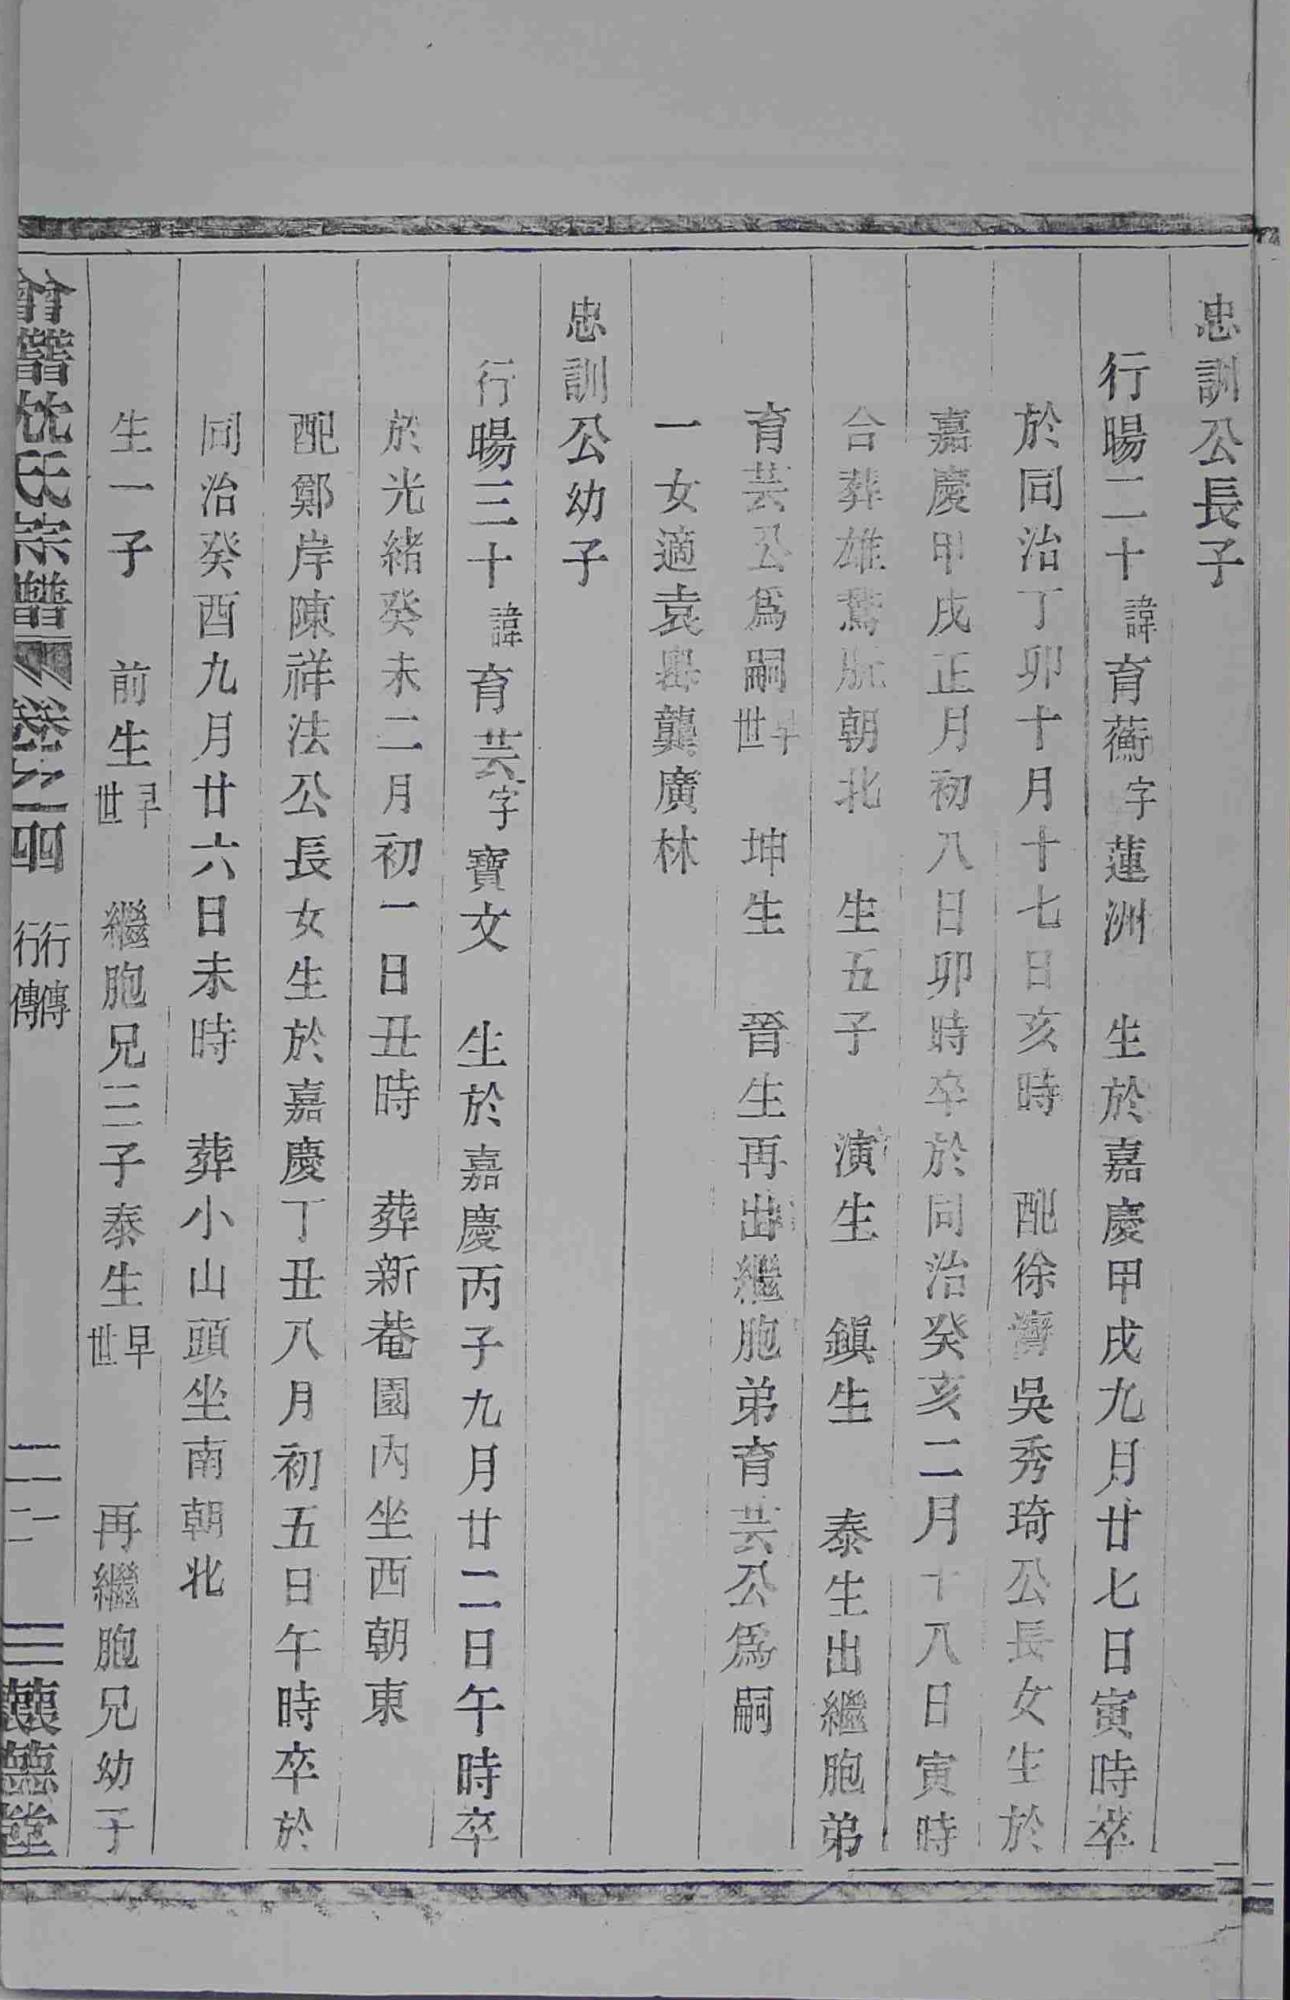 忠訓公長子
行暘二十諱育蘅字蓮洲　生於嘉慶甲戌九月廿七日寅時卒
於同治丁卯十月十七日亥時　配徐灣吳秀琦公長女生於
嘉慶甲戌正月初八日卯時卒於同治癸亥二月十八日寅時
合葬雄鵞脘朝北　生五子　演生　鎭生　泰生出繼胞弟
育芸公爲嗣早世　坤生　晉生再出繼胞弟育芸公爲嗣
一女適袁嶴龔廣林
忠訓公幼子
行暘三十諱育芸字寶文　生於嘉慶丙子九月廿二日午時卒
於光緒癸未二月初一日丑時　葬新菴園內坐西朝東
配鄭岸陳祥法公長女生於嘉慶丁丑八月初五日午時卒於
同治癸酉九月廿六日未時　葬小山頭坐南朝北
生一子　前生早世　繼胞兄三子泰生早世　再繼胞兄幼子
氏宗譜　卷之四　行傳　行傳　懷德堂